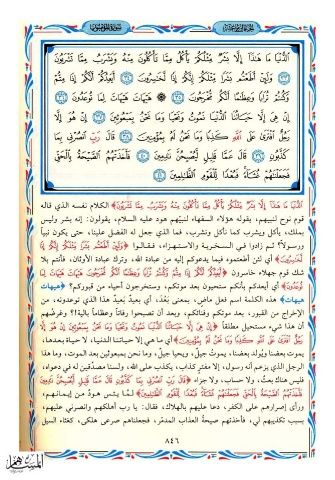 الجزء الثامن عشر
سورة المؤمنون
الدُّنْيَا مَا هَٰذَا إِلَّا بَشَرٌ مِّثْلُكُمْ يَأْكُلُ مِمَّا تَأْكُلُونَ مِنْهُ وَيَشْرَبُ مِمَّا تَشْرَبُونَ
٣٣ وَلَئِنْ أَطَعْتُم بَشَرًا مِّثْلَكُمْ إِنَّكُمْ إِذًا لَّخَٰسِرُونَ ٣٤ أَيَعِدُكُمْ أَنَّكُمْ إِذَا مِتُّمْ
وَكُنتُمْ تُرَابًا وَعِظَٰمًا أَنَّكُم مُّخْرَجُونَ ٣٥ ۞ هَيْهَاتَ هَيْهَاتَ لِمَا تُوعَدُونَ ٣٦
إِنْ هِيَ إِلَّا حَيَاتُنَا الدُّنْيَا نَمُوتُ وَنَحْيَا وَمَا نَحْنُ بِمَبْعُوثِينَ ٣٧ إِنْ هُوَ إِلَّا
رَجُلٌ افْتَرَىٰ عَلَى اللَّهِ كَذِبًا وَمَا نَحْنُ لَهُ بِمُؤْمِنِينَ ٣٨ قَالَ رَبِّ انصُرْنِي بِمَا
كَذَّبُونِ ٣٩ قَالَ عَمَّا قَلِيلٍ لَّيُصْبِحُنَّ نَٰدِمِينَ ٤٠ فَأَخَذَتْهُمُ الصَّيْحَةُ بِالْحَقِّ
فَجَعَلْنَٰهُمْ غُثَاءً فَبُعْدًا لِّلْقَوْمِ الظَّٰلِمِينَ ٤١
الدُّنْيَا مَا هَٰذَا إِلَّا بَشَرٌ مِّثْلُكُمْ يَأْكُلُ مِمَّا تَأْكُلُونَ مِنْهُ وَيَشْرَبُ مِمَّا تَشْرَبُونَ﴾ الكلام نفسه الذي قاله
قوم نوح لنبيهم، يقوله هؤلاء السفهاء لنبيّهم هود عليه السلام، يقولون: إنه بشر وليس
بملك، يأكل ويشرب كما نأكل ونشرب، فما الذي جعل له الفضل علينا، حتى يكون نبياً
ورسولاً؟ ثم زادوا في السخرية والاستهزاء، فقالوا ﴿وَلَئِنْ أَطَعْتُم بَشَرًا مِّثْلَكُمْ إِنَّكُمْ إِذًا
لَّخَٰسِرُونَ﴾ أي لئن أطعتموه فيما يدعوكم إليه من عبادة الله، وترك عبادة الأوثان، فأنتم بلا
شك قوم جهلاء خاسرون ﴿أَيَعِدُكُمْ أَنَّكُمْ إِذَا مِتُّمْ وَكُنتُمْ تُرَابًا وَعِظَٰمًا أَنَّكُم مُّخْرَجُونَ هَيْهَاتَ هَيْهَاتَ لِمَا
تُوعَدُونَ﴾ أي أيعدكم بأنكم ستحيون بعد موتكم، وستخرجون أحياء من قبوركم؟ ﴿هيهات
هيهات﴾ هذه الكلمة اسم فعل ماضٍ، بمعنى بَعُدَ، أي بعيدٌ بعيدٌ هذا الذي توعدونه، من
الإخراج من القبور، بعد موتكم وفنائكم، وبعد أن تصبحوا رفاتاً وعظاماً بالية!؟ وغرضُهم
أن هذا شيء مستحيل مطلقاً ﴿إِنْ هِيَ إِلَّا حَيَاتُنَا الدُّنْيَا نَمُوتُ وَنَحْيَا وَمَا نَحْنُ بِمَبْعُوثِينَ إِنْ هُوَ إِلَّا
رَجُلٌ افْتَرَىٰ عَلَى اللَّهِ كَذِبًا وَمَا نَحْنُ لَهُ بِمُؤْمِنِينَ﴾ أي ما هي إلا حياتنا الدنيا، لا حياة بعدها،
يموت بعضنا ويُولد بعضنا، يموتُ جيلٌ، ويحيا جيل، وما نحن بمبعوثين بعد الموت، وما هذا
الرجل الذي يزعم أنه رسول، إلا مفترٍ كذاب، يكذب على الله، ولسنا مصدِّقين له في دعواه،
فليس هناك بعثٌ، ولا حساب، ولا جزاء ﴿قَالَ رَبِّ انصُرْنِي بِمَا كَذَّبُونِ قَالَ عَمَّا قَلِيلٍ لَّيُصْبِحُنَّ نَٰدِمِينَ
فَأَخَذَتْهُمُ الصَّيْحَةُ بِالْحَقِّ فَجَعَلْنَٰهُمْ غُثَاءً فَبُعْدًا لِّلْقَوْمِ الظَّٰلِمِينَ﴾ لمَّا يئس هودٌ من إيمانهم،
ورأى إصرارهم على الكفر، دعا عليهم بالهلاك، فقال: يا رب أهلكهم وانصرني عليهم،
بسبب تكذيبهم لي، فأخذتهم صيحةُ العذاب المدمّر، فجعلناهم صرعى هلكى، كغثاء السيل
٨٤٦